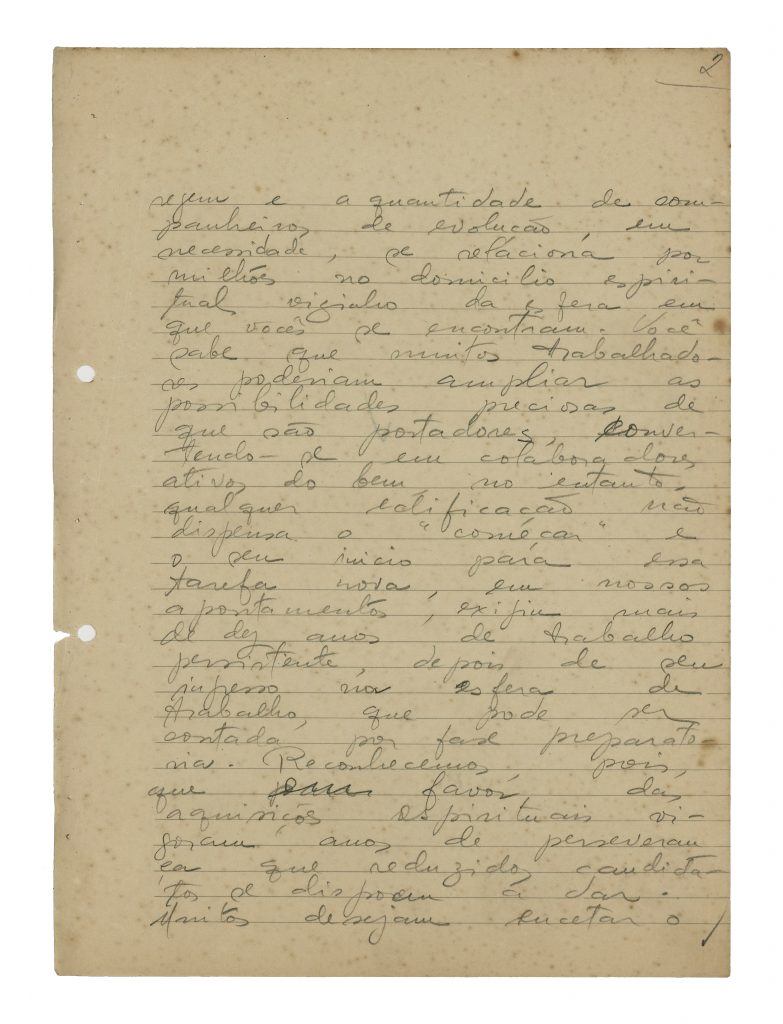 2
regem e a quantidade de com-
panheiros de evolução, em
necessidade, se relaciona por
milhões no domicilio espiri-
tual visinho da esfera em
que vocês se encontram. Você
sabe que muitos trabalhado-
res poderiam ampliar as
possibilidades preciosas de
que são portadores, conver-
tendo-se em colaboradores
ativos do bem, no entanto,
qualquer edificação não
dispensa o "começar" e
o seu inicio para essa
tarefa nova, em nossos
apontamentos, exigiu mais
de dez anos de trabalho
persistente, depois de seu
ingresso na esfera de
trabalho, que pode ser
contada por fase preparato-
ria. Reconhecemos, pois,
que favor das
aquisições espirituais vi-
goram anos de perseveran
ça que reduzidos candida-
tos se dispoem á dar.
Muitos desejam encetar o